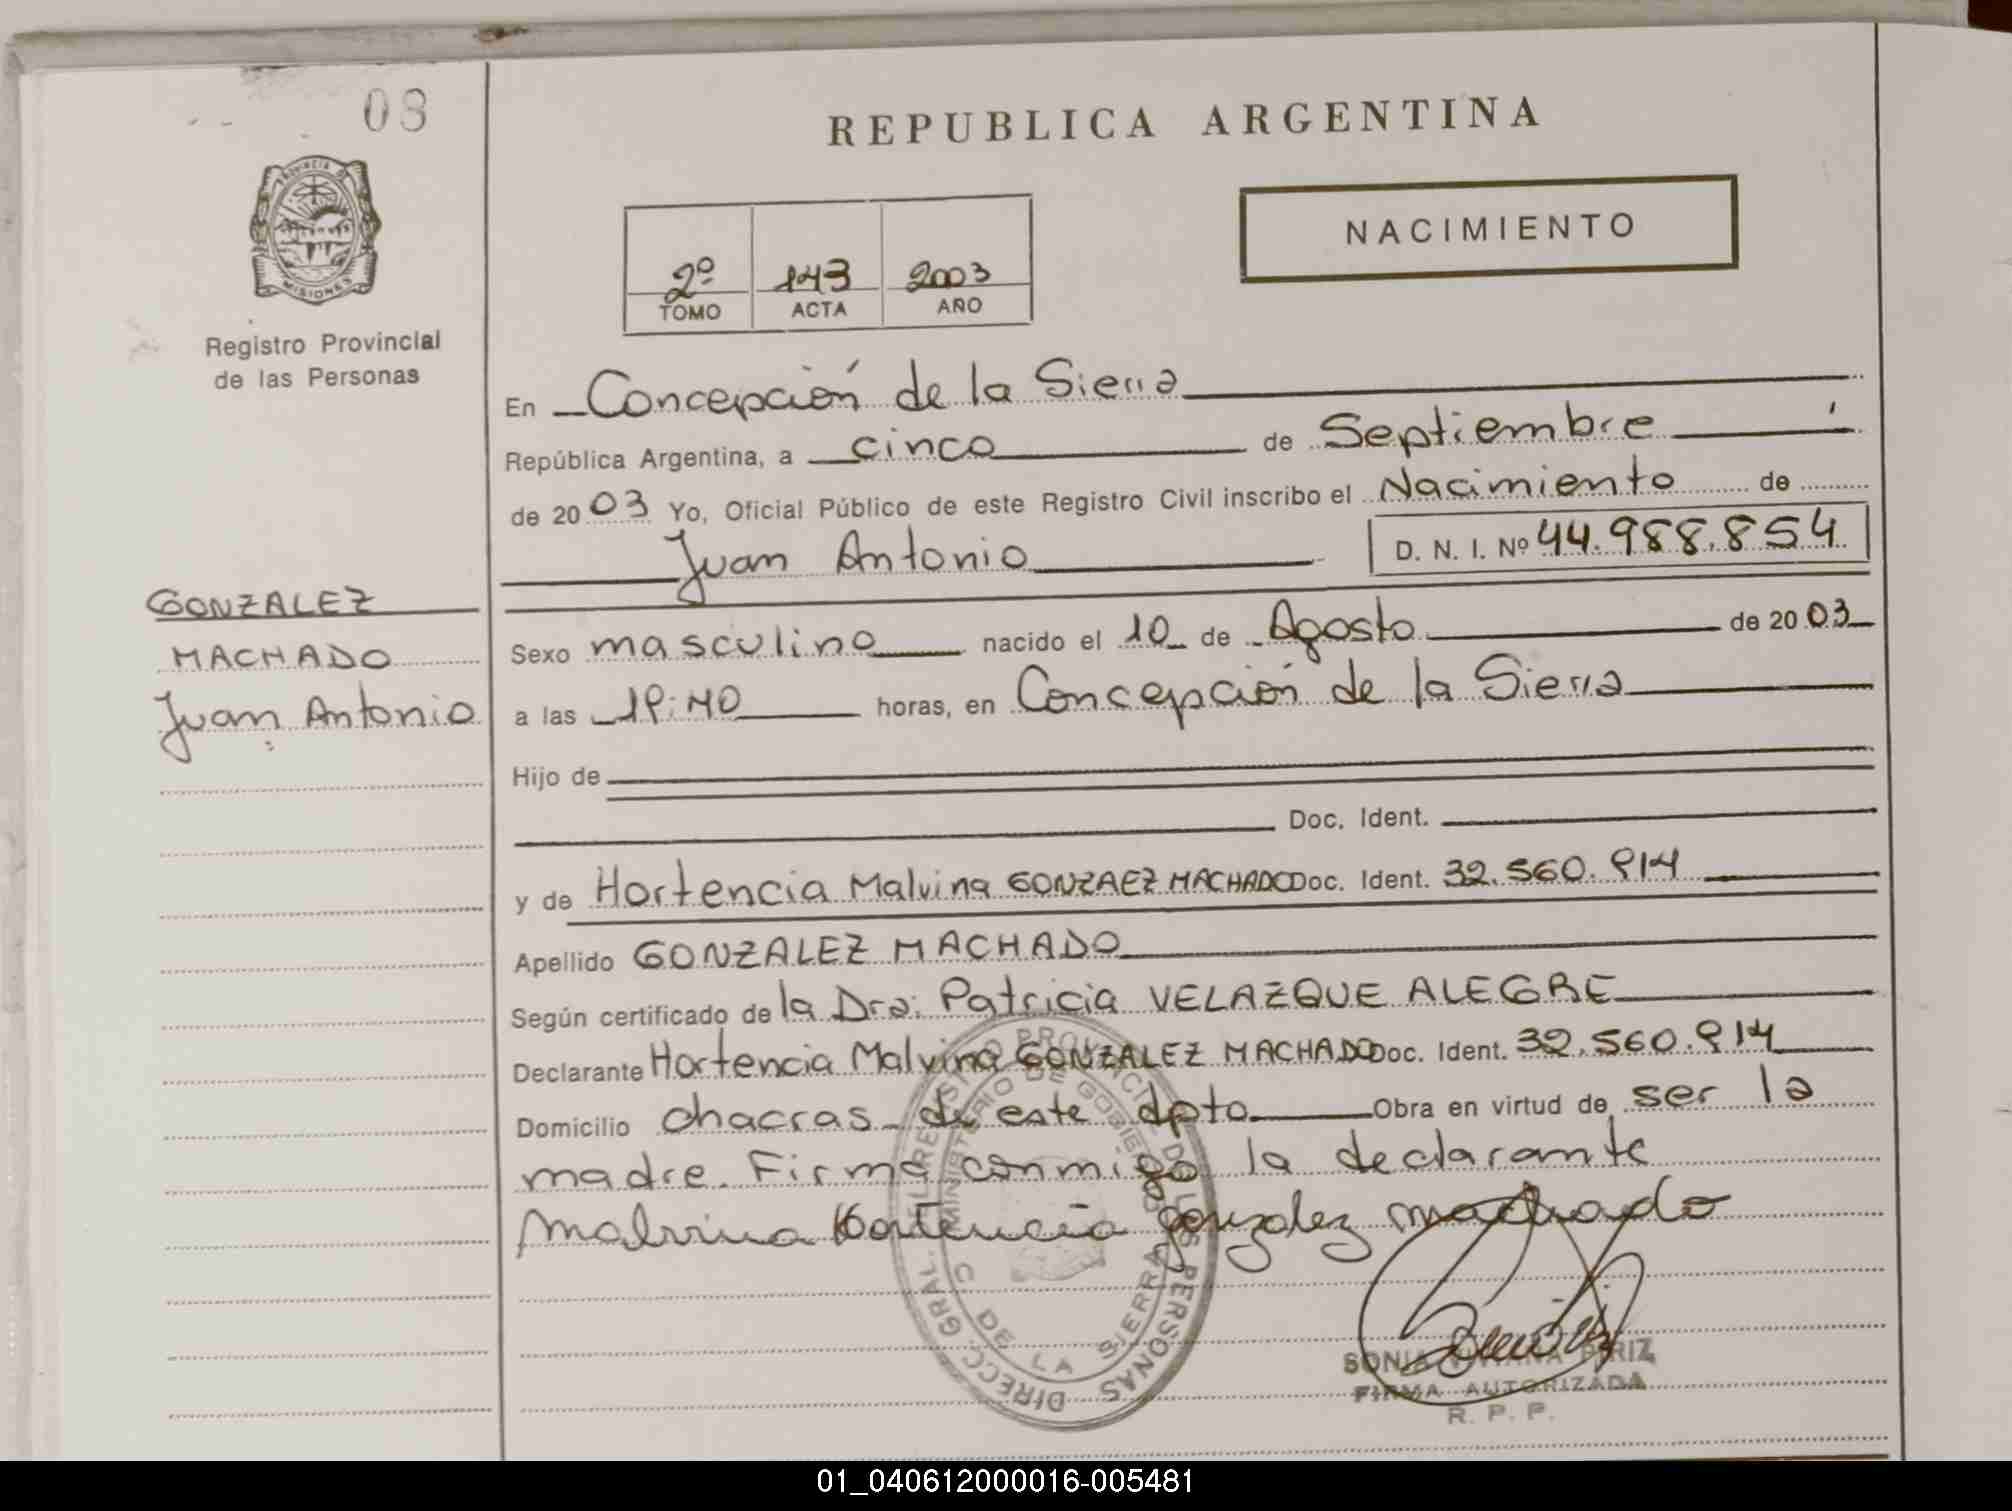 08
PROVINCIA DE
MISIONES
Registro Provincial
de las Personas
REPUBLICA ARGENTINA
NACIMIENTO
2º 143 2003
TOMO ACTA AÑO
En Concepción de la Sierra
República Argentina, a cinco de Septiembre
de 2003 Yo, Oficial Público de este Registro Civil inscribo el Nacimiento de
Juan Antonio D. N. I. Nº 44.988.854
GONZALEZ
MACHADO
Juan Antonio
Sexo masculino nacido el 10 de Agosto de 2003
a las horas, en Concepción de la Sierra
Hijo de
Doc. Ident.
y de Hortencia Malvina GONZAEZ MACHADO Doc. Ident. 32.560.914
Apellido GONZALEZ MACHADO
Según certificado de la Dra. Patricia VELAZQUE ALEGRE
Declarante Hortencia Malvina GONZALEZ MACHADO Doc. Ident. 32.560.914
Domicilio chacras de este dpto Obra en virtud de ser la
madre. Firma conmigo la declarante
Malvina Hortencia gonzalez machado
DIRECC. GRAL. DEL REGISTRO PROVINCIAL DE LAS PERSONAS
MINISTERIO DE GOBIERNO
C DE LA SIERRA
SONIA VIVIANA PIRIZ
FIRMA AUTORIZADA
R. P. P.
01_040612000016-005481